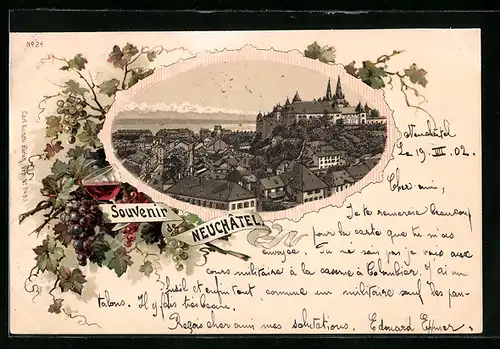 No 24
Souvenir
de
NEUCHÂTEL
Neuchâtel
Le 19. III. 02.
Cher ami,
Je te remercie beaucoup
pour la carte que tu m'as
envoyée. Tu ne sais pas je vais aux
cours militaire à la caserne à Colombier. J'ai un
fusil et enfin tout, comme un militaire sauf les pan-
talons. Il y fais très beau.
Reçois cher ami mes salutations. Edouard